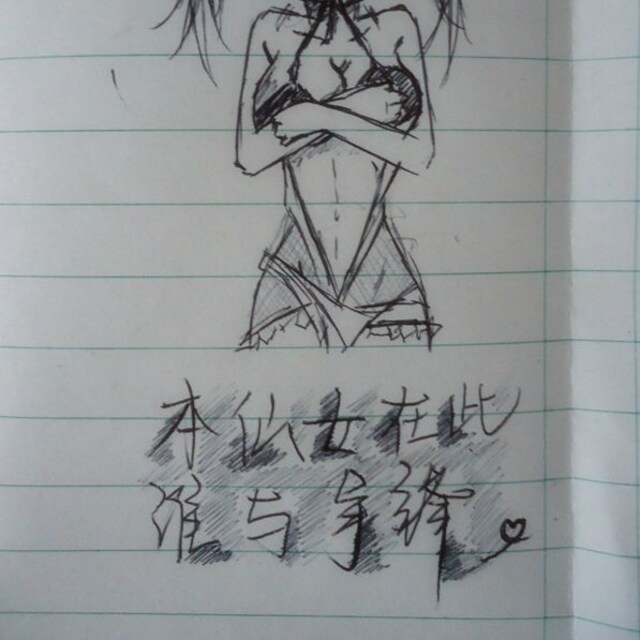 本仙女在此
谁与争锋